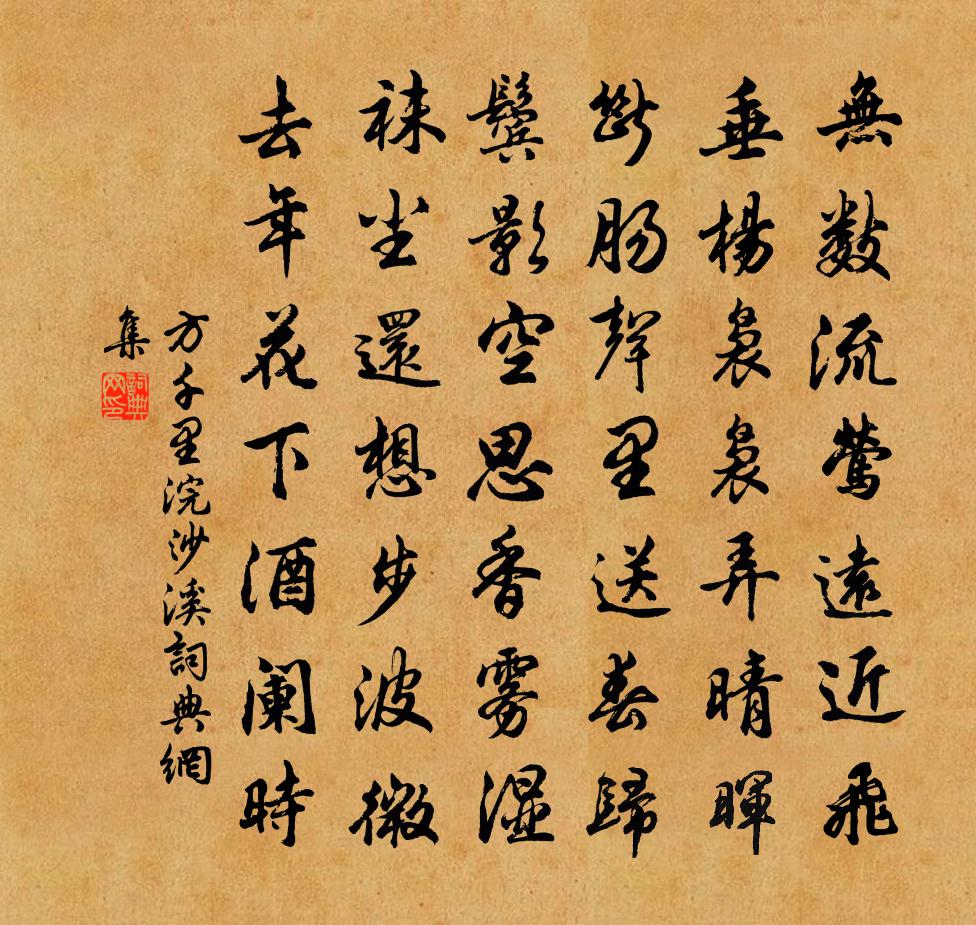 無數流鶯遠近飛
垂楊裊裊弄晴暉
斷腸聲里送春歸
鬢影空思香霧濕
襪塵還想步波微
去年花下酒闌時
方千里浣沙溪詞典網
集
詞典網印